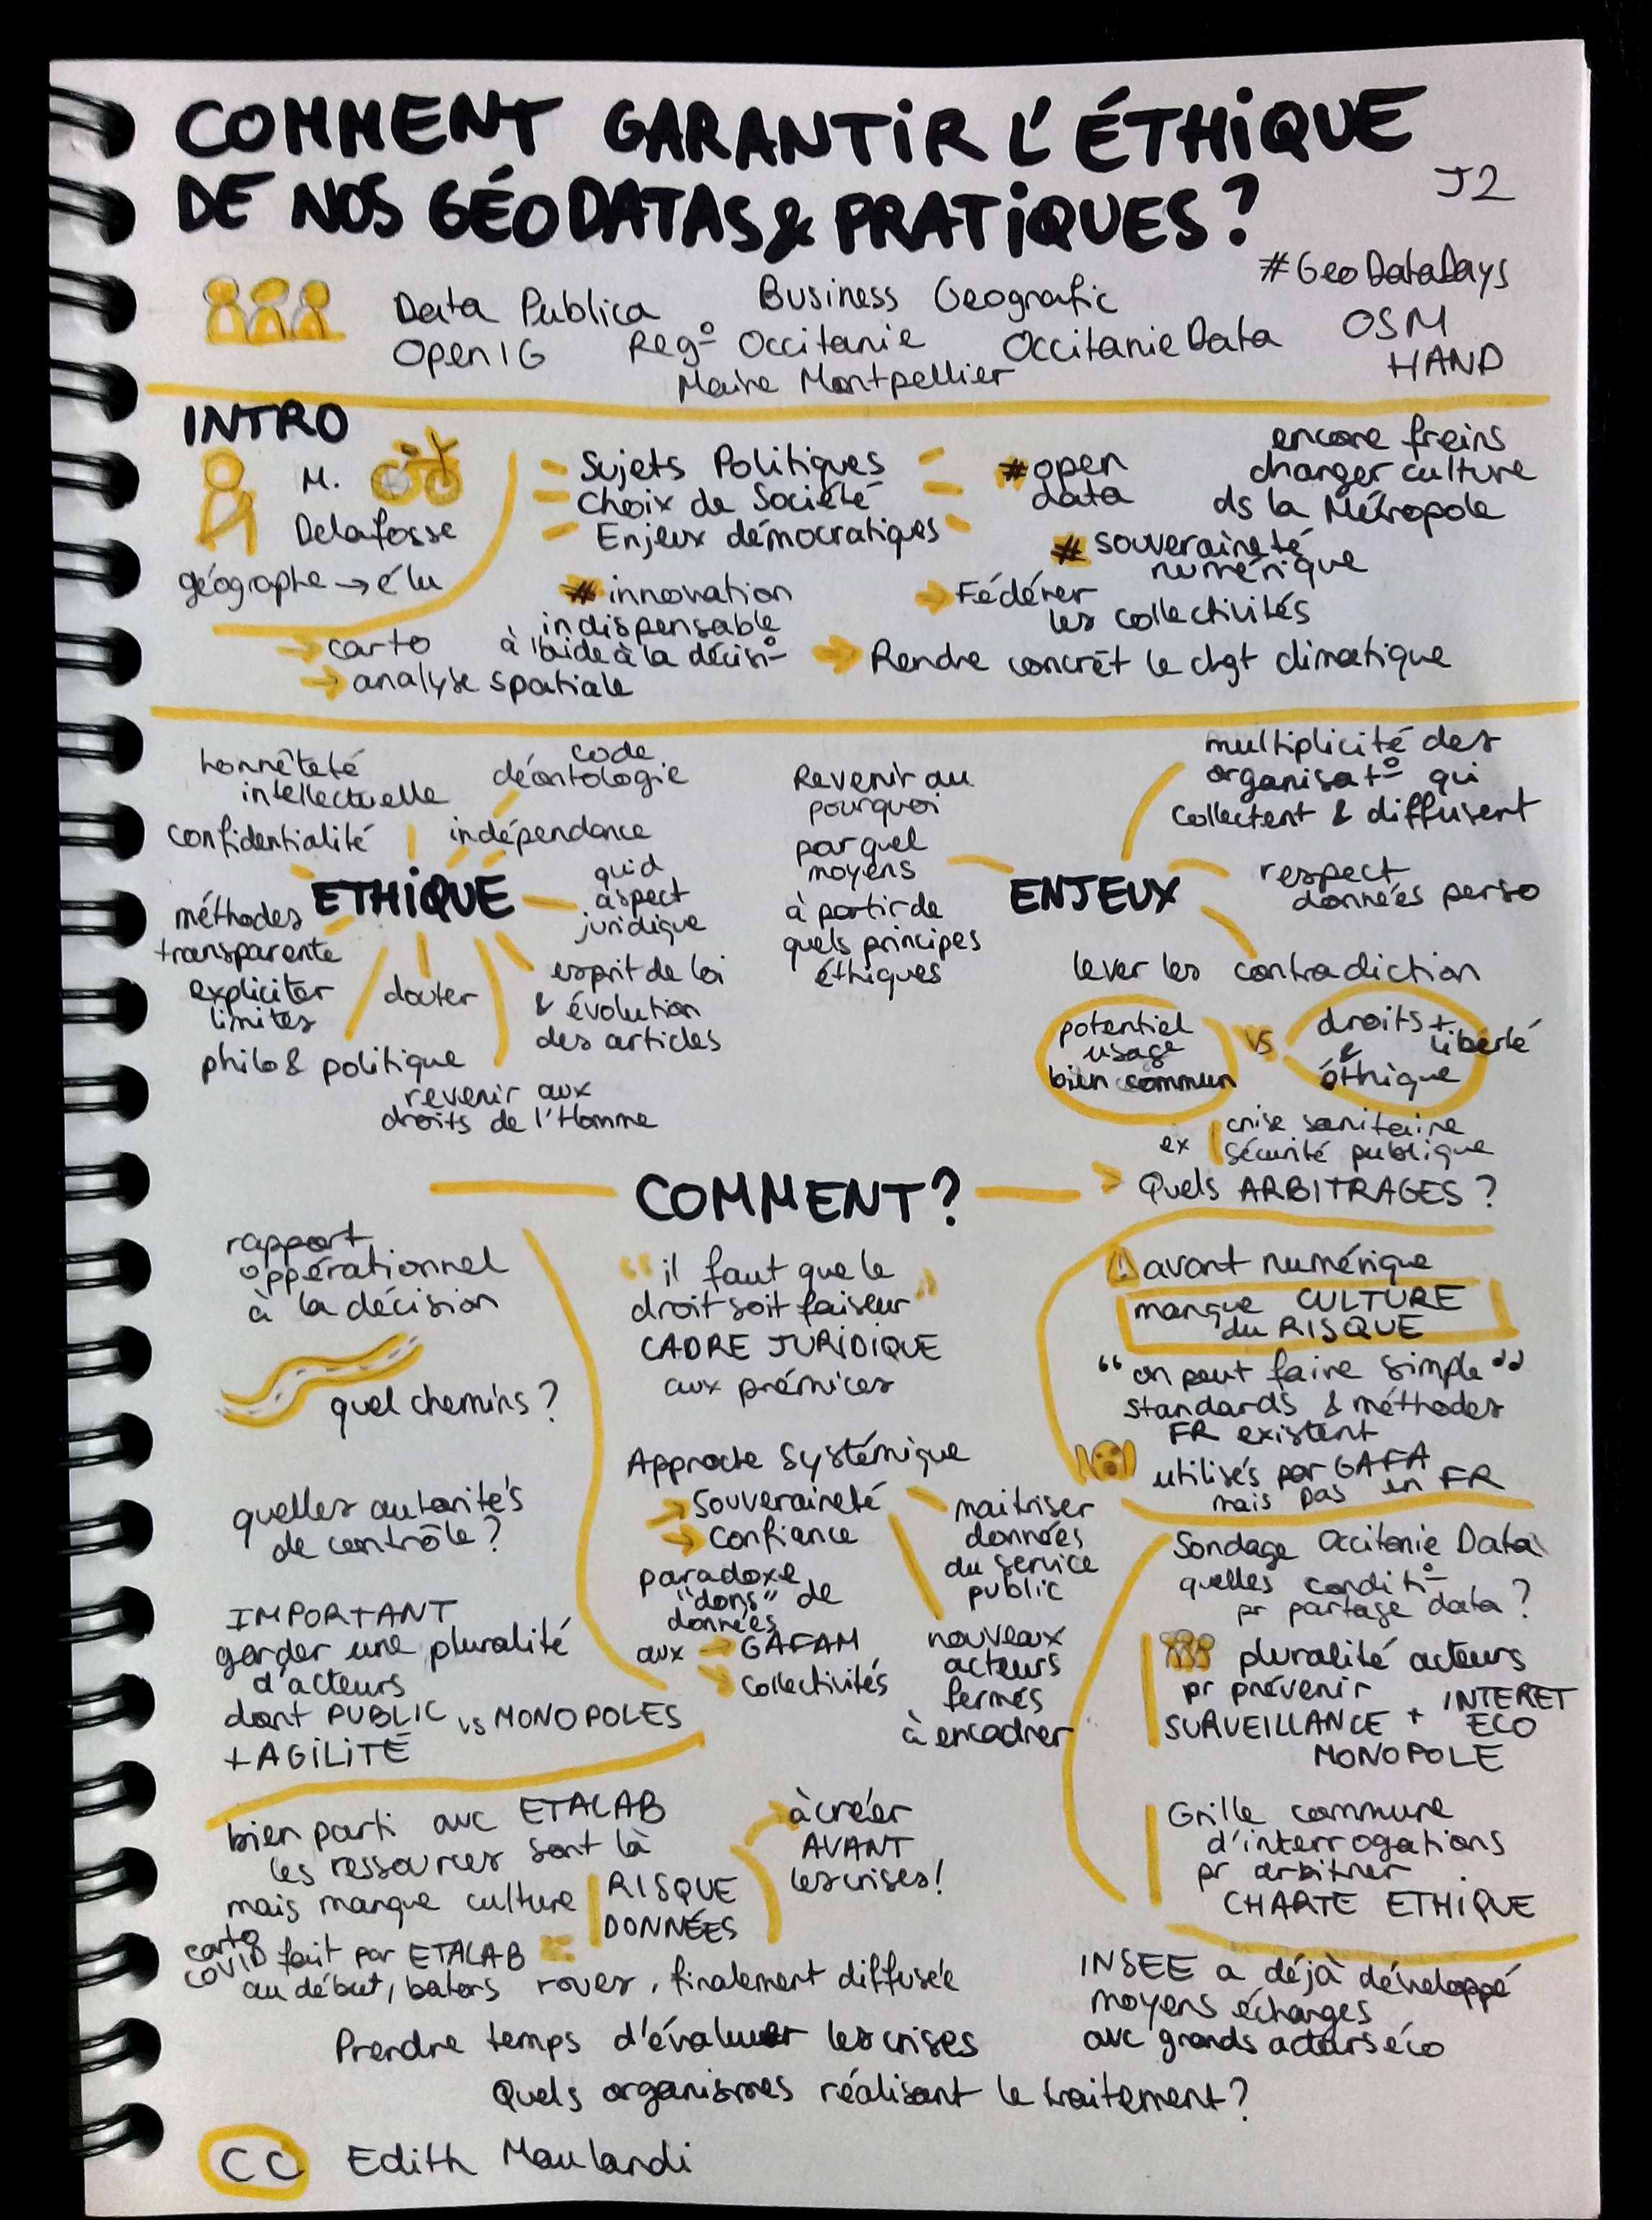 COMMENT GARANTIR L'ÉTHIQUE
DE NOS GÉODATAS & PRATIQUES ?
J2
#GeoDataDays
Data Publica
Business Geografic
OpenIG
Reg° Occitanie
Occitanie Data
OSM
HAND
Maire Montpellier
INTRO
M.
Delafosse
géographe → élu
→ carto
→ analyse spatiale
Sujets Politiques
Choix de Société
Enjeux démocratiques
# innovation
indispensable
à l'aide à la décisi°
# open
data
encore freins
changer culture
ds la Métropole
# souveraineté
numérique
→ Fédérer
les collectivités
→ Rendre concrèt le chgt climatique
honnêteté
intellectuelle
code
déontologie
confidentialité
indépendance
ETHIQUE
quid
aspect
juridique
méthodes
transparente
expliciter
limites
douter
esprit de loi
& évolution
des articles
philo & politique
revenir aux
droits de l'Homme
Revenir au
pourquoi
par quel
moyens
à partir de
quels principes
éthiques
ENJEUX
multiplicité des
organisat° qui
collectent & diffusent
respect
données perso
lever les contradiction
potentiel
usage
bien commun
VS
droits +
liberté
&
éthique
ex
crise sanitaire
sécurité publique
→ Quels ARBITRAGES ?
COMMENT ?
rapport
oppérationnel
à la décision
quel chemins ?
quelles autorités
de contrôle ?
IMPORTANT
garder une pluralité
d'acteurs
dont PUBLIC vs MONOPOLES
+ AGILITÉ
"il faut que le
droit soit faiseur"
CADRE JURIDIQUE
aux prémices
Approche Systémique
→ Souveraineté
→ Confiance
paradoxe
"dons" de
données
aux → GAFAM
→ Collectivités
maitriser
données
du service
public
nouveaux
acteurs
fermés
à encadrer
! avant numérique
manque CULTURE
du RISQUE
"on peut faire simple"
standards & méthodes
FR existent
utilisés par GAFA
mais pas en FR
Sondage Occitanie Data
quelles condit°
pr partage data ?
pluralité acteurs
pr prévenir
SURVEILLANCE + INTERET
ECO
MONOPOLE
Grille commune
d'interrogations
pr arbitrer
CHARTE ETHIQUE
bien parti avc ETALAB
les ressources sont là
mais manque culture
RISQUE
DONNÉES
à créer
AVANT
les crises !
carto
COVID fait par ETALAB
au début, batons roues, finalement diffusée
Prendre temps d'évaluer les crises
Quels organismes réalisant le traitement ?
INSEE a déjà développé
moyens échanges
avc grands acteurs éco
CC Edith Maulandi